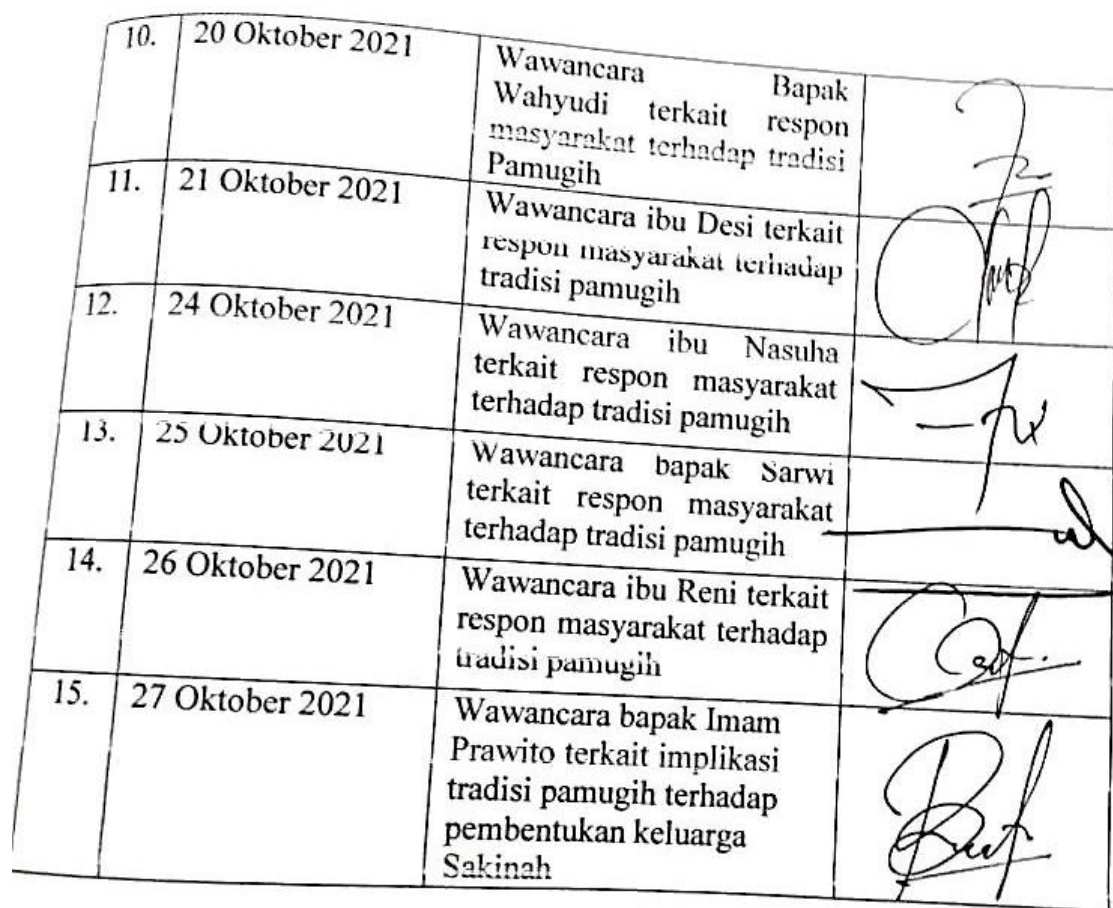 10. 20 Oktober 2021 Wawancara Bapak
Wahyudi terkait respon
masyarakat terhadap tradisi
Pamugih
11. 21 Oktober 2021 Wawancara ibu Desi terkait
respon masyarakat terhadap
tradisi pamugih
12. 24 Oktober 2021 Wawancara ibu Nasuha
terkait respon masyarakat
terhadap tradisi pamugih
13. 25 Oktober 2021 Wawancara bapak Sarwi
terkait respon masyarakat
terhadap tradisi pamugih
14. 26 Oktober 2021 Wawancara ibu Reni terkait
respon masyarakat terhadap
tradisi pamugih
15. 27 Oktober 2021 Wawancara bapak Imam
Prawito terkait implikasi
tradisi pamugih terhadap
pembentukan keluarga
Sakinah